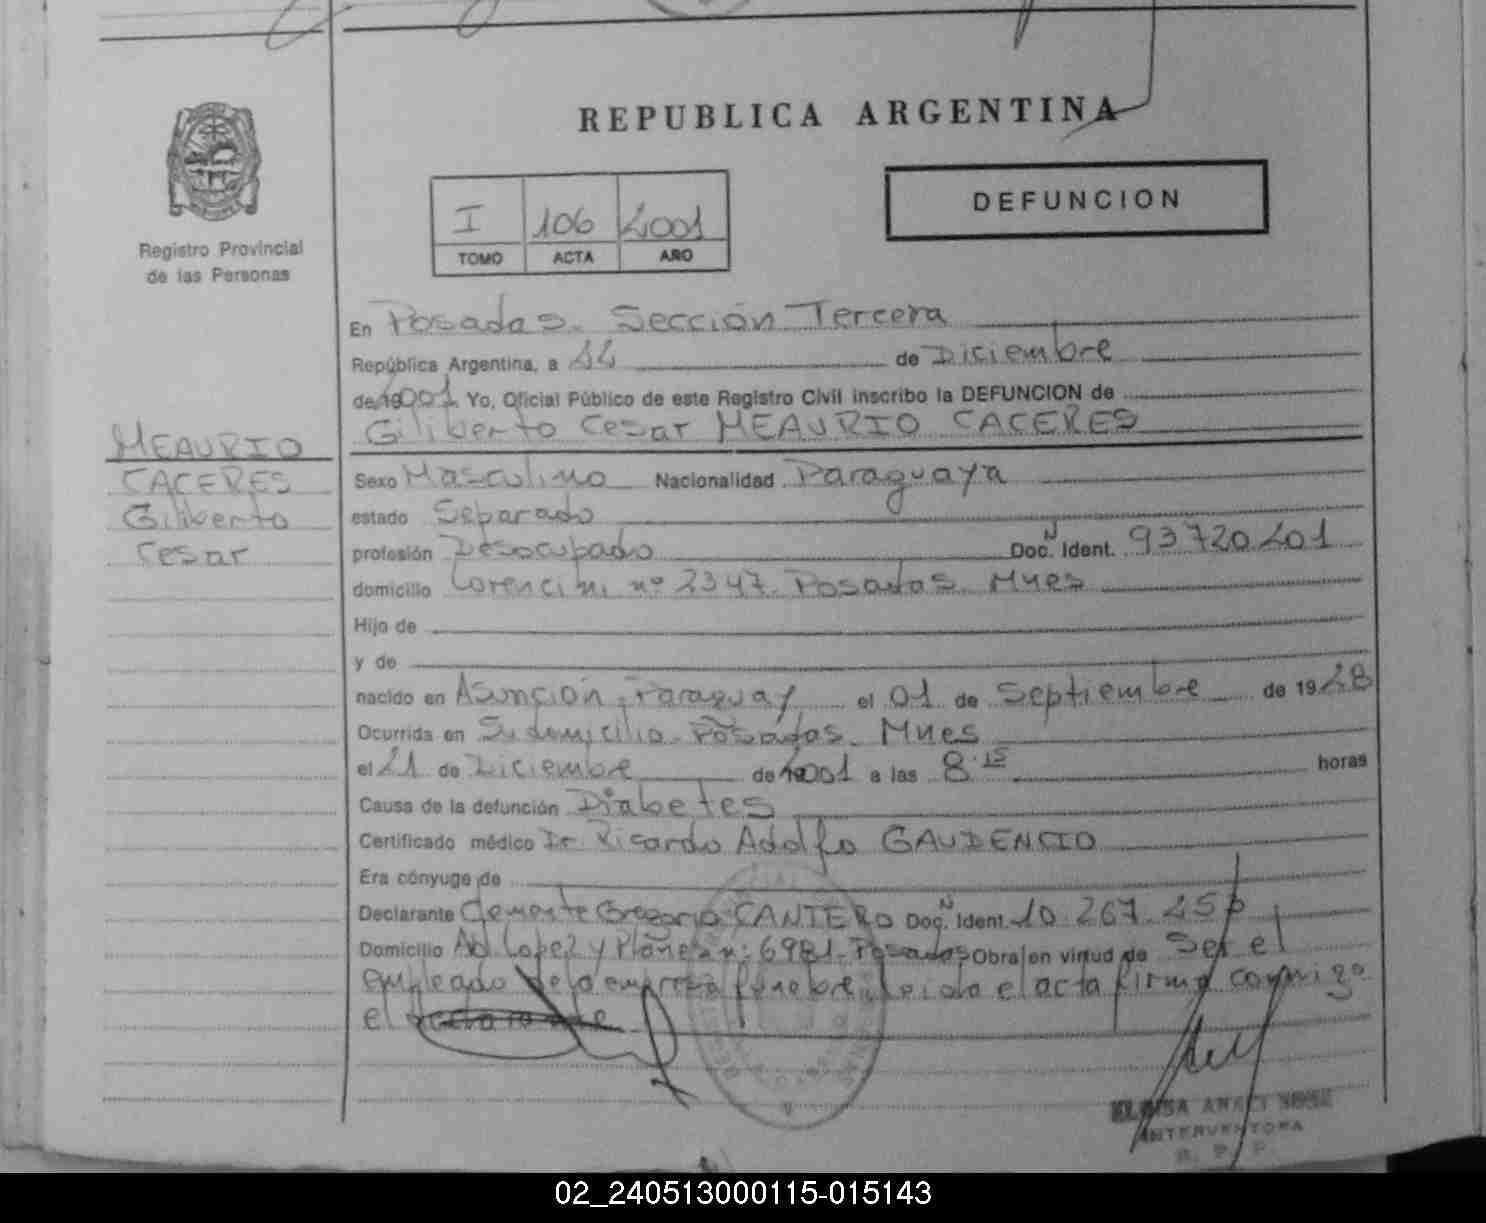 REPUBLICA ARGENTINA
DEFUNCION
I 106 2001
TOMO ACTA AÑO
Registro Provincial
de las Personas
En Posadas. Sección Tercera
República Argentina, a 22 de Diciembre
de 2001. Yo, Oficial Público de este Registro Civil inscribo la DEFUNCION de
Giliberto Cesar MEAURIO CACERES
MEAURIO
CACERES
Giliberto
Cesar
Sexo Masculino Nacionalidad Paraguaya
estado Separado
profesión Desocupado Doc. N Ident. 93720201
domicilio Lorencini nº 2347. Posadas. Mnes
Hijo de
y de
nacido en Asunción, Paraguay el 01 de Septiembre de 1928
Ocurrida en Su domicilio. Posadas. Mnes
el 21 de Diciembre de 2001 a las 8.15 horas
Causa de la defunción Diabetes
Certificado médico Dr. Ricardo Adolfo GAUDENCIO
Era cónyuge de
Declarante Clemente Gregorio CANTERO Doc. N Ident. 10.267.25
Domicilio Ab. Lopez y Planes nº 6981. Posadas Obra en virtud de Ser el
empleado de la empresa funebre, leida el acta firma conmigo
el
INTERVENTORA
R. P. P.
02_240513000115-015143